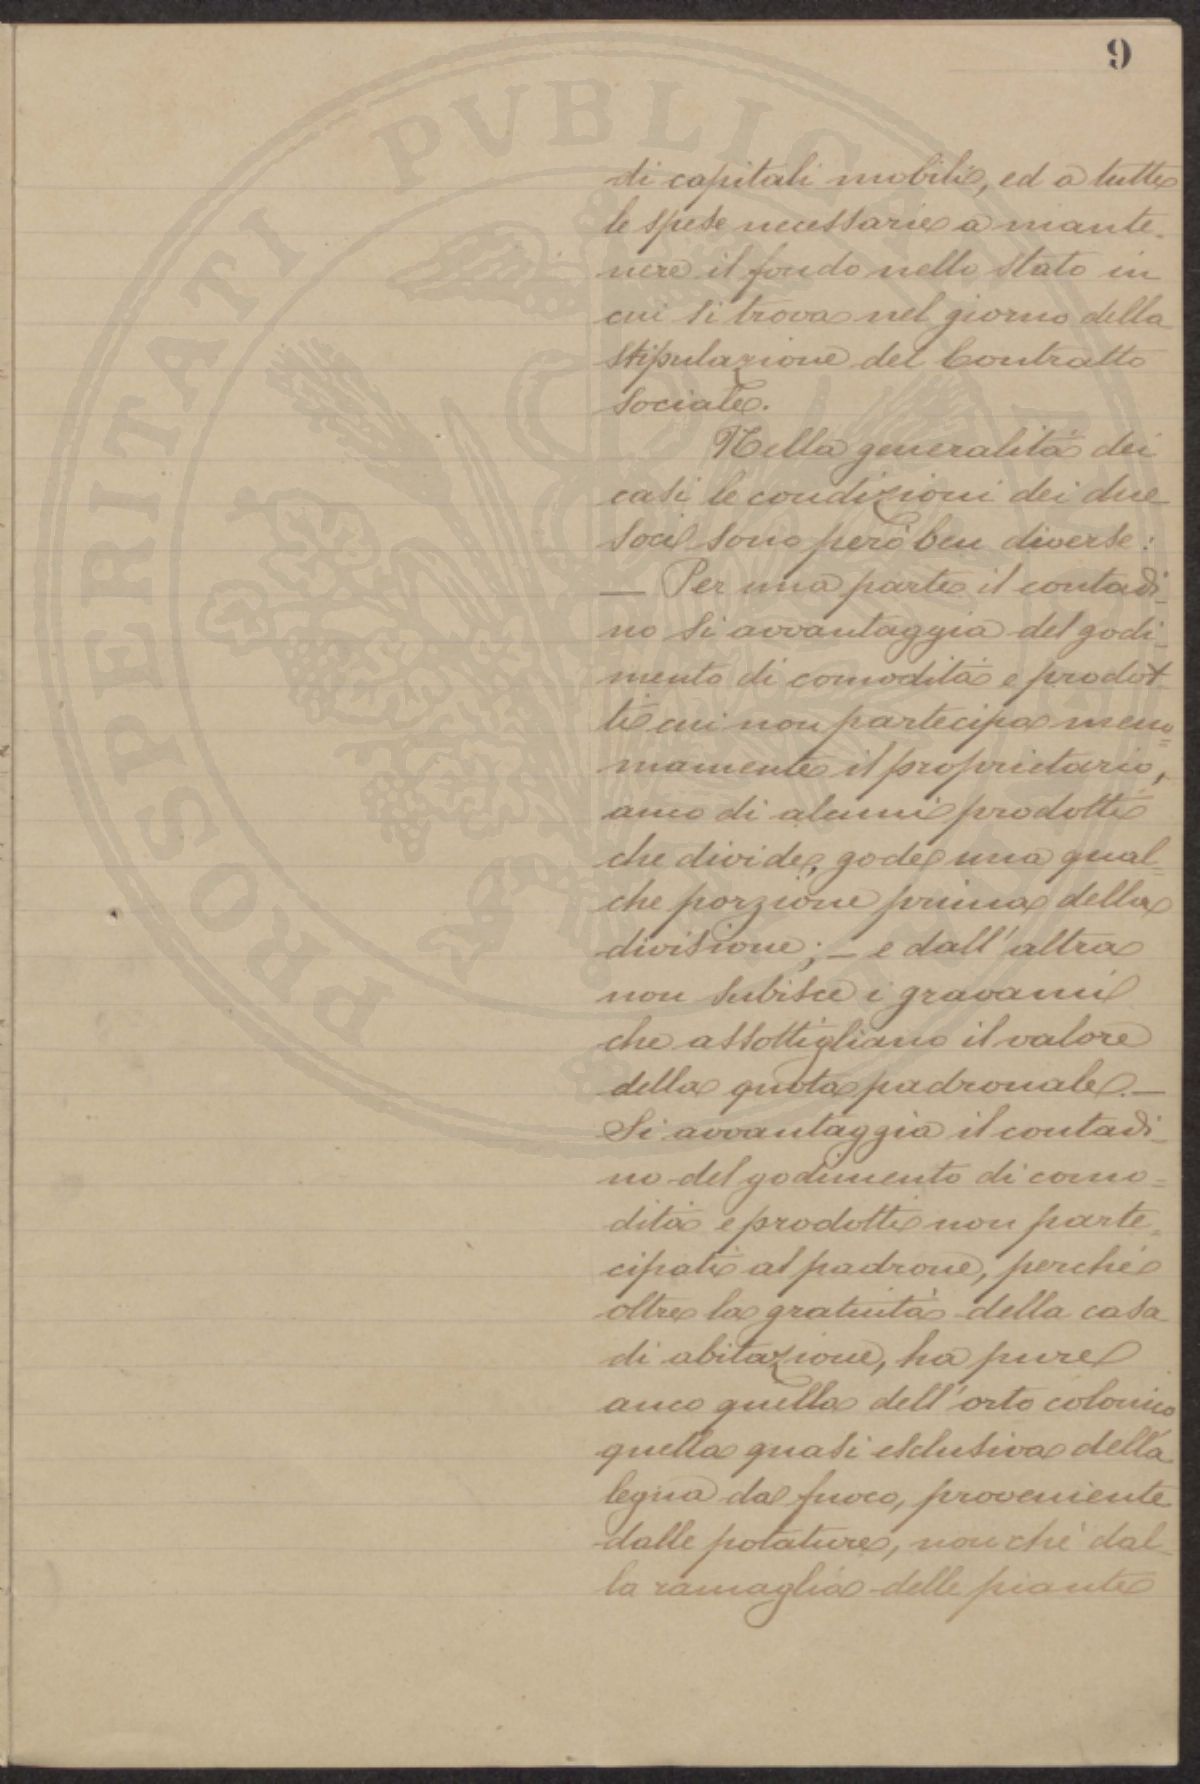 9
PROSPERITATI PVBLICAE
di capitali mobili, ed a tutte
le spese necessarie a mante-
nere il fondo nello stato in
cui si trova nel giorno della
stipulazione del Contratto
sociale.
Nella generalità dei
casi le condizioni dei due
soci sono però ben diverse:
— Per una parte il contadi-
no si avvantaggia del godi-
mento di comodità e prodot-
ti cui non partecipa meno=
mamente il proprietario,
anco di alcuni prodotti
che divide, gode una qual=
che porzione prima della
divisione; — e dall'altra
non subisce i gravami
che assottigliano il valore
della quota padronale. —
Si avvantaggia il contadi-
no del godimento di como=
dità e prodotti non parte=
cipati al padrone, perché
oltre la gratuità della casa
di abitazione, ha pure
anco quella dell'orto colonico,
quella quasi esclusiva della
legna da fuoco, proveniente
dalle potature, non chè dal-
la ramaglia delle piante